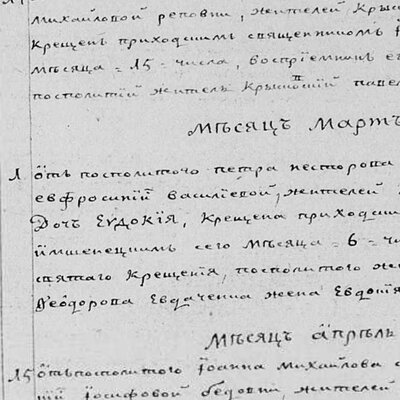 михайловой реповни, жителей Крыш
Крещенъ приходскимъ священникомъ
мѣсяца = 15 = числа, восприемник ег
посполитій жителъ Крышовскій павел
Мѣсяцъ Мартъ
1 ѿтъ посполитого петра несторова
евфросиніи василіевой, жителей
Дочь Еѵдокія, Крещена приходским
Ѝмшенецкимъ сего Мѣсяца = 6 = чи
святаго Крещенія, посполитого же
Ѳеодорова Евдаченка жена Евдокія
Мѣсяцъ а҆прѣль
15 ѿтъ посполитого Іоанна Михайлова
Іосифовой бедовни, жителей